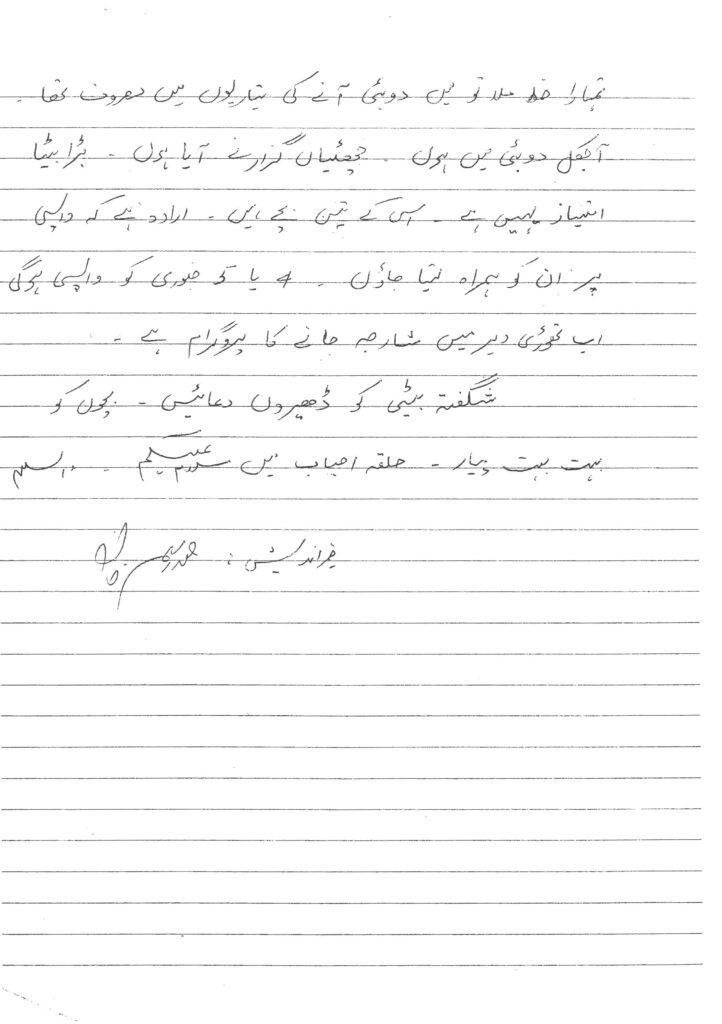 تمہارا خط ملا تو میں دوبئی آنے کی تیاریوں میں مصروف تھا ۔
آجکل دوبئی میں ہوں ۔ چھٹیاں گزارنے آیا ہوں ۔ بڑا بیٹا
امتیاز یہیں ہے ۔ اس کے تین بچے ہیں ۔ ارادہ ہے کہ واپسی
پر ان کو ہمراہ لیتا جاؤں ۔ 4 یا 5 جنوری کو واپسی ہوگی
اب تھوڑی دیر میں شارجہ جانے کا پروگرام ہے ۔
شگفتہ بیٹی کو ڈھیروں دعائیں ۔ بچوں کو
بہت بہت پیار ۔ حلقہ احباب میں سلام علیکم ۔ والسلام
خیر اندیش :